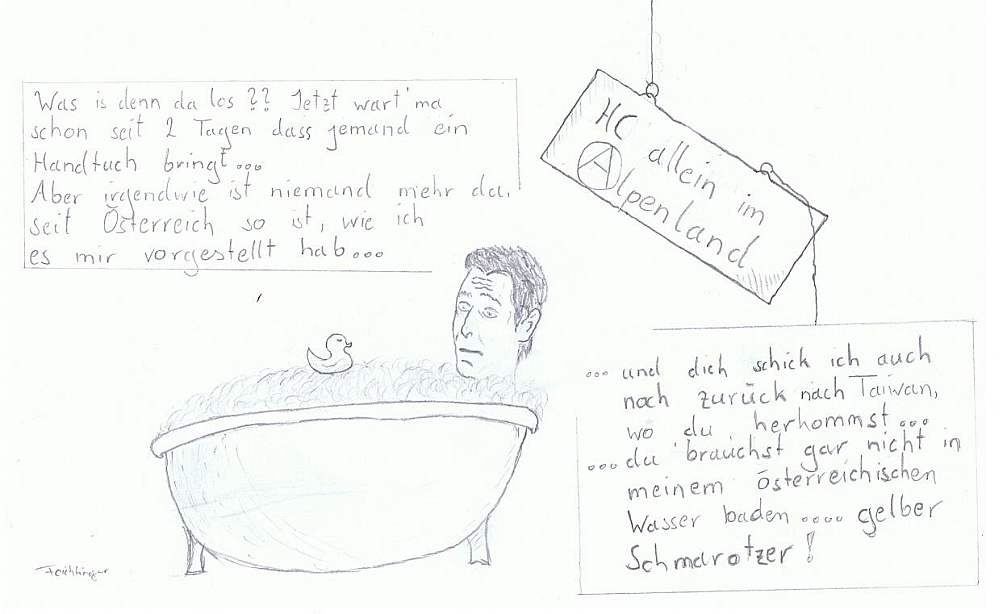 Was is denn da los ?? Jetzt wart' ma
schon seit 2 Tagen dass jemand ein
Handtuch bringt...
Aber irgendwie ist niemand mehr da,
seit Österreich so ist, wie ich
es mir vorgestellt hab...
HC allein im
Alpenland
... und dich schick ich auch
noch zurück nach Taiwan,
wo du herkommst...
...du brauchst gar nicht in
meinem österreichischen
Wasser baden .... gelber
Schmarotzer !